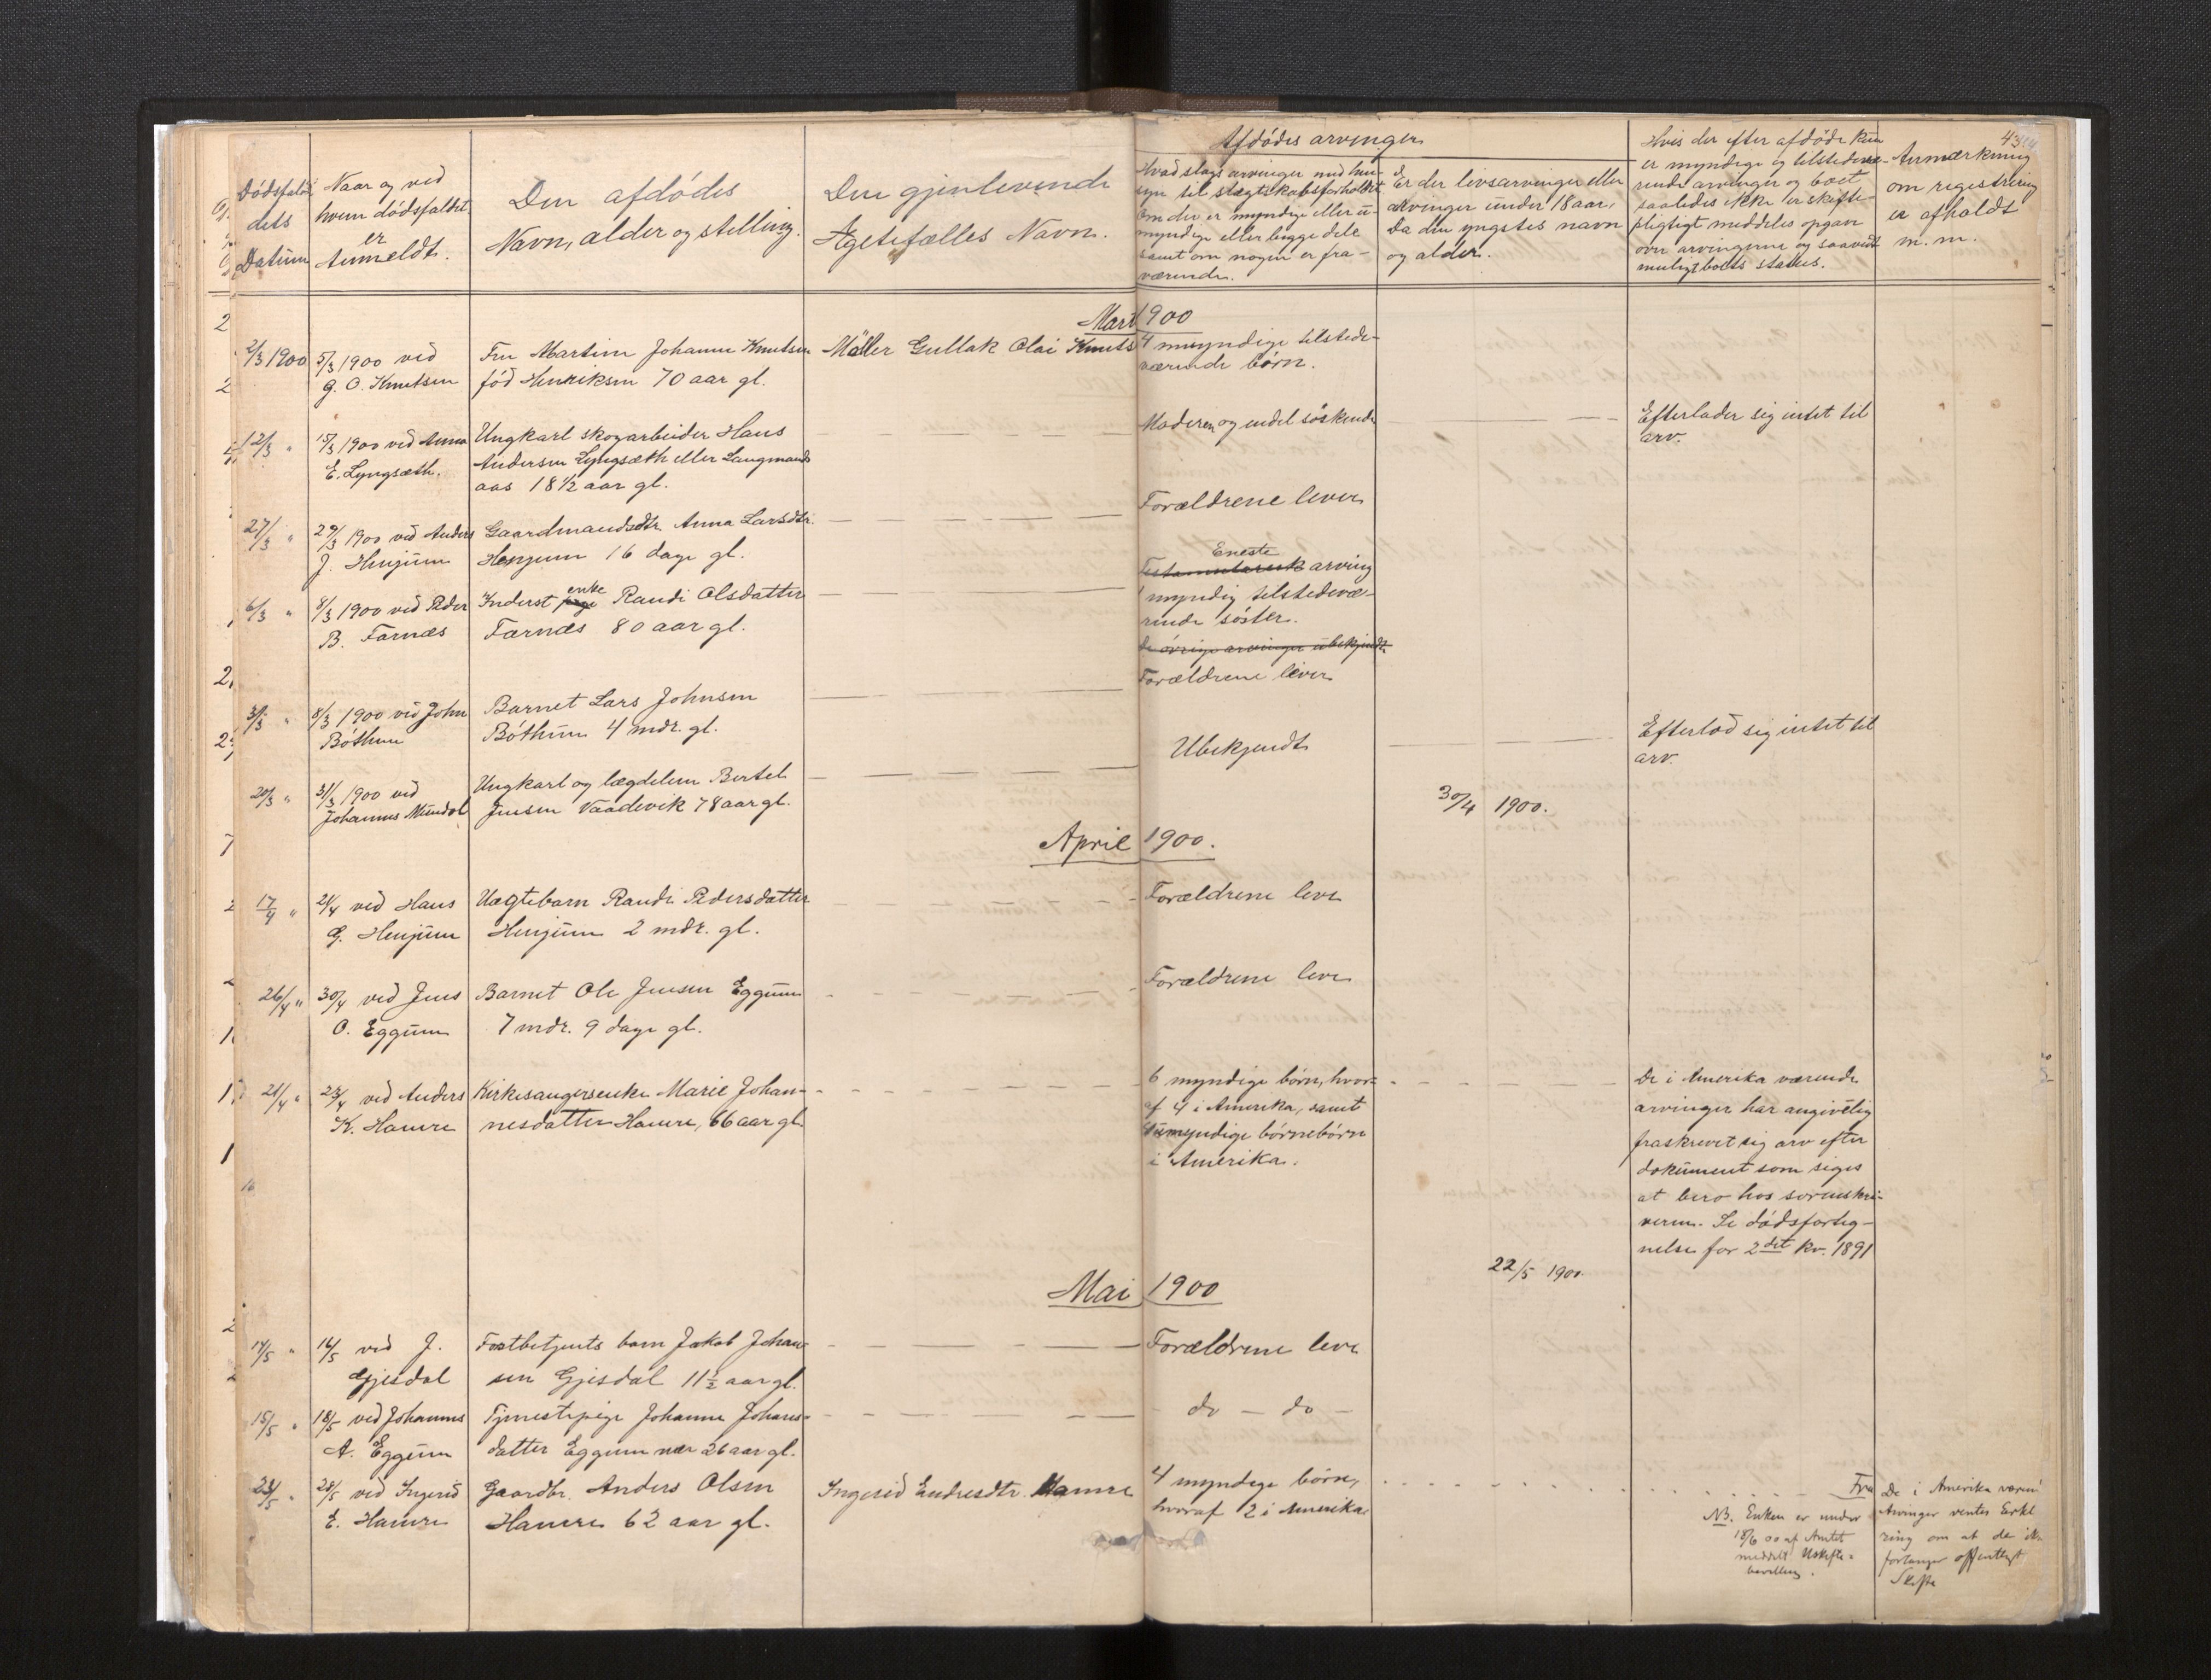 43
Dödsfal-
dets
Datum
Naar og ved
hvem dödsfaldet
er
Anmeldt.
Den afdödes
Navn, alder og stelling.
Den gjenlevende
Ægtefælles Navn.
Afdödes arvinger
Hvad slags arvinger med hen-
syn til slægtskabsforholdet
Om der er myndige eller u-
myndige eller begge dele
samt om nogen er fra-
værende.
Er der livsarvinger eller
arvinger under 18 aar,
da den yngstes navn
og alder.
Hvis der efter afdöde kun
er myndige og tilstedevæ-
rende arvinger og boet
saaledes ikke er skifte-
pligtigt meddeles opgave
over arvingerne og saavidt
muligt boets status.
Anmærkning
om registrering
er afholdt
m. m.
Marts 1900
2/3 1900
5/3 1900 ved
G. O. Knutsen
Fru Martine Johanne Knutsen
född Henriksen 70 aar gl.
Möller Gullak Olai Knuts
4 myndige tilstede-
værende börn.
12/3 "
15/3 1900 ved Anna
E. Lyngsæth.
Ungkarl skogarbeider Hans
Andersen Lyngsæth eller Langmands
aas 18 1/2 aar gl.
Moderen og endel söskende
Efterlader sig intet til
arv.
27/3 "
29/3 1900 ved Anders
J. Henjum
Gaardmandsdtr Anna Larsdtr.
Henjum 16 dage gl.
Forældrene lever
6/3 "
8/3 1900 ved Peder
B. Farnæs
Inderst enke Randi Olsdatter
Farnæs 80 aar gl.
Eneste
Testamentarisk arving
1 myndig tilstedevæ-
rende söster.
De övrige arvinger ubekjendt.
3/3 "
8/3 1900 ved John
Böthun
Barnet Lars Johnsen
Böthun 4 mdr. gl.
Forældrene lever
20/3 "
31/3 1900 ved
Johannes Mundal
Ungkarl og lægdelem Bertel
Jensen Vaadevik 78 aar gl.
Ubekjendt
Efterlod sig intet til
arv.
30/4 1900.
April 1900.
17/4 "
21/4 ved Hans
G. Henjum
Uægtebarn Randi Pedersdatter
Henjum 2 mdr. gl.
Forældrene leve
26/4 "
30/4 ved Jens
O. Eggum
Barnet Ole Jensen Eggum
7 mdr. 9 dage gl.
Forældrene leve
21/4 "
23/4 ved Anders
K. Hamre
Kirkesangersenke Marie Johan-
nesdatter Hamre, 66 aar gl.
6 myndige börn, hvor-
af 4 i Amerika, samt
umyndige börnebörn
i Amerika.
De i Amerika værende
arvinger har angivelig
fraskrevet sig arv efter
dokument som siges
at bero hos sorenskri-
veren. Se dödsforteg-
nelse for 2det kv. 1891
22/5 1900.
Mai 1900
14/5 "
16/5 ved J.
Gjesdal
Forstbetjents barn Jakob Johan-
sen Gjesdal 11 1/2 aar gl.
Forældrene leve
15/5 "
18/5 ved Johannes
A. Eggum
Tjenestepige Johanne Johans-
datter Eggum nær 26 aar gl.
do - do -
23/5 "
28/5 ved Ingerid
E. Hamre
Gaardbr. Anders Olsen
Hamre 62 aar gl.
Ingerid Endresdtr. Hamre
4 myndige börn,
hvoraf 2 i Amerika
Fra
NB. Enken er under
18/6 00 af Amtet
meddelt Uskifte-
bevilling.
De i Amerika væren
Arvinger venter Erkl
ring om at de ik
forlanger offentligt
Skifte